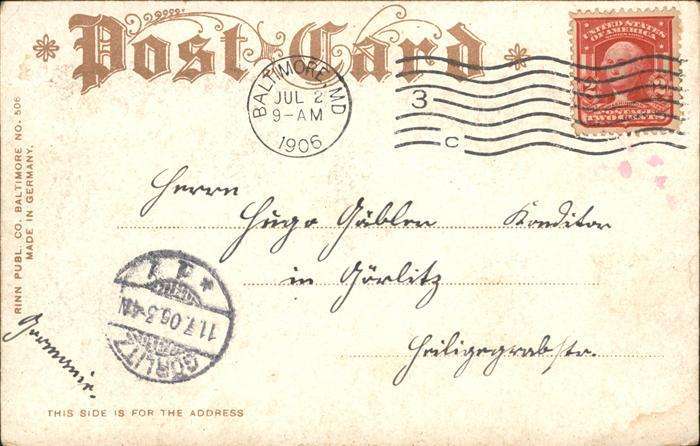 Post Card
UNITED STATES OF AMERICA
TWO CENTS
BALTIMORE, MD.
JUL 2
9-AM
1906
3
C
RINN PUBL. CO. BALTIMORE NO. 506
MADE IN GERMANY.
Herrn
Hugo Gäbler Konditor
in Görlitz
Heiligegrabstr.
Germanie.
GÖRLITZ
11.7.06.3-4N
THIS SIDE IS FOR THE ADDRESS